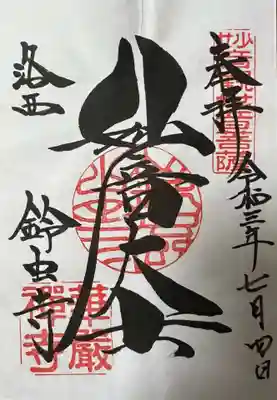 奉拝
令和三年七月四日
妙音大士
洛西
鈴虫寺
華厳
禅寺